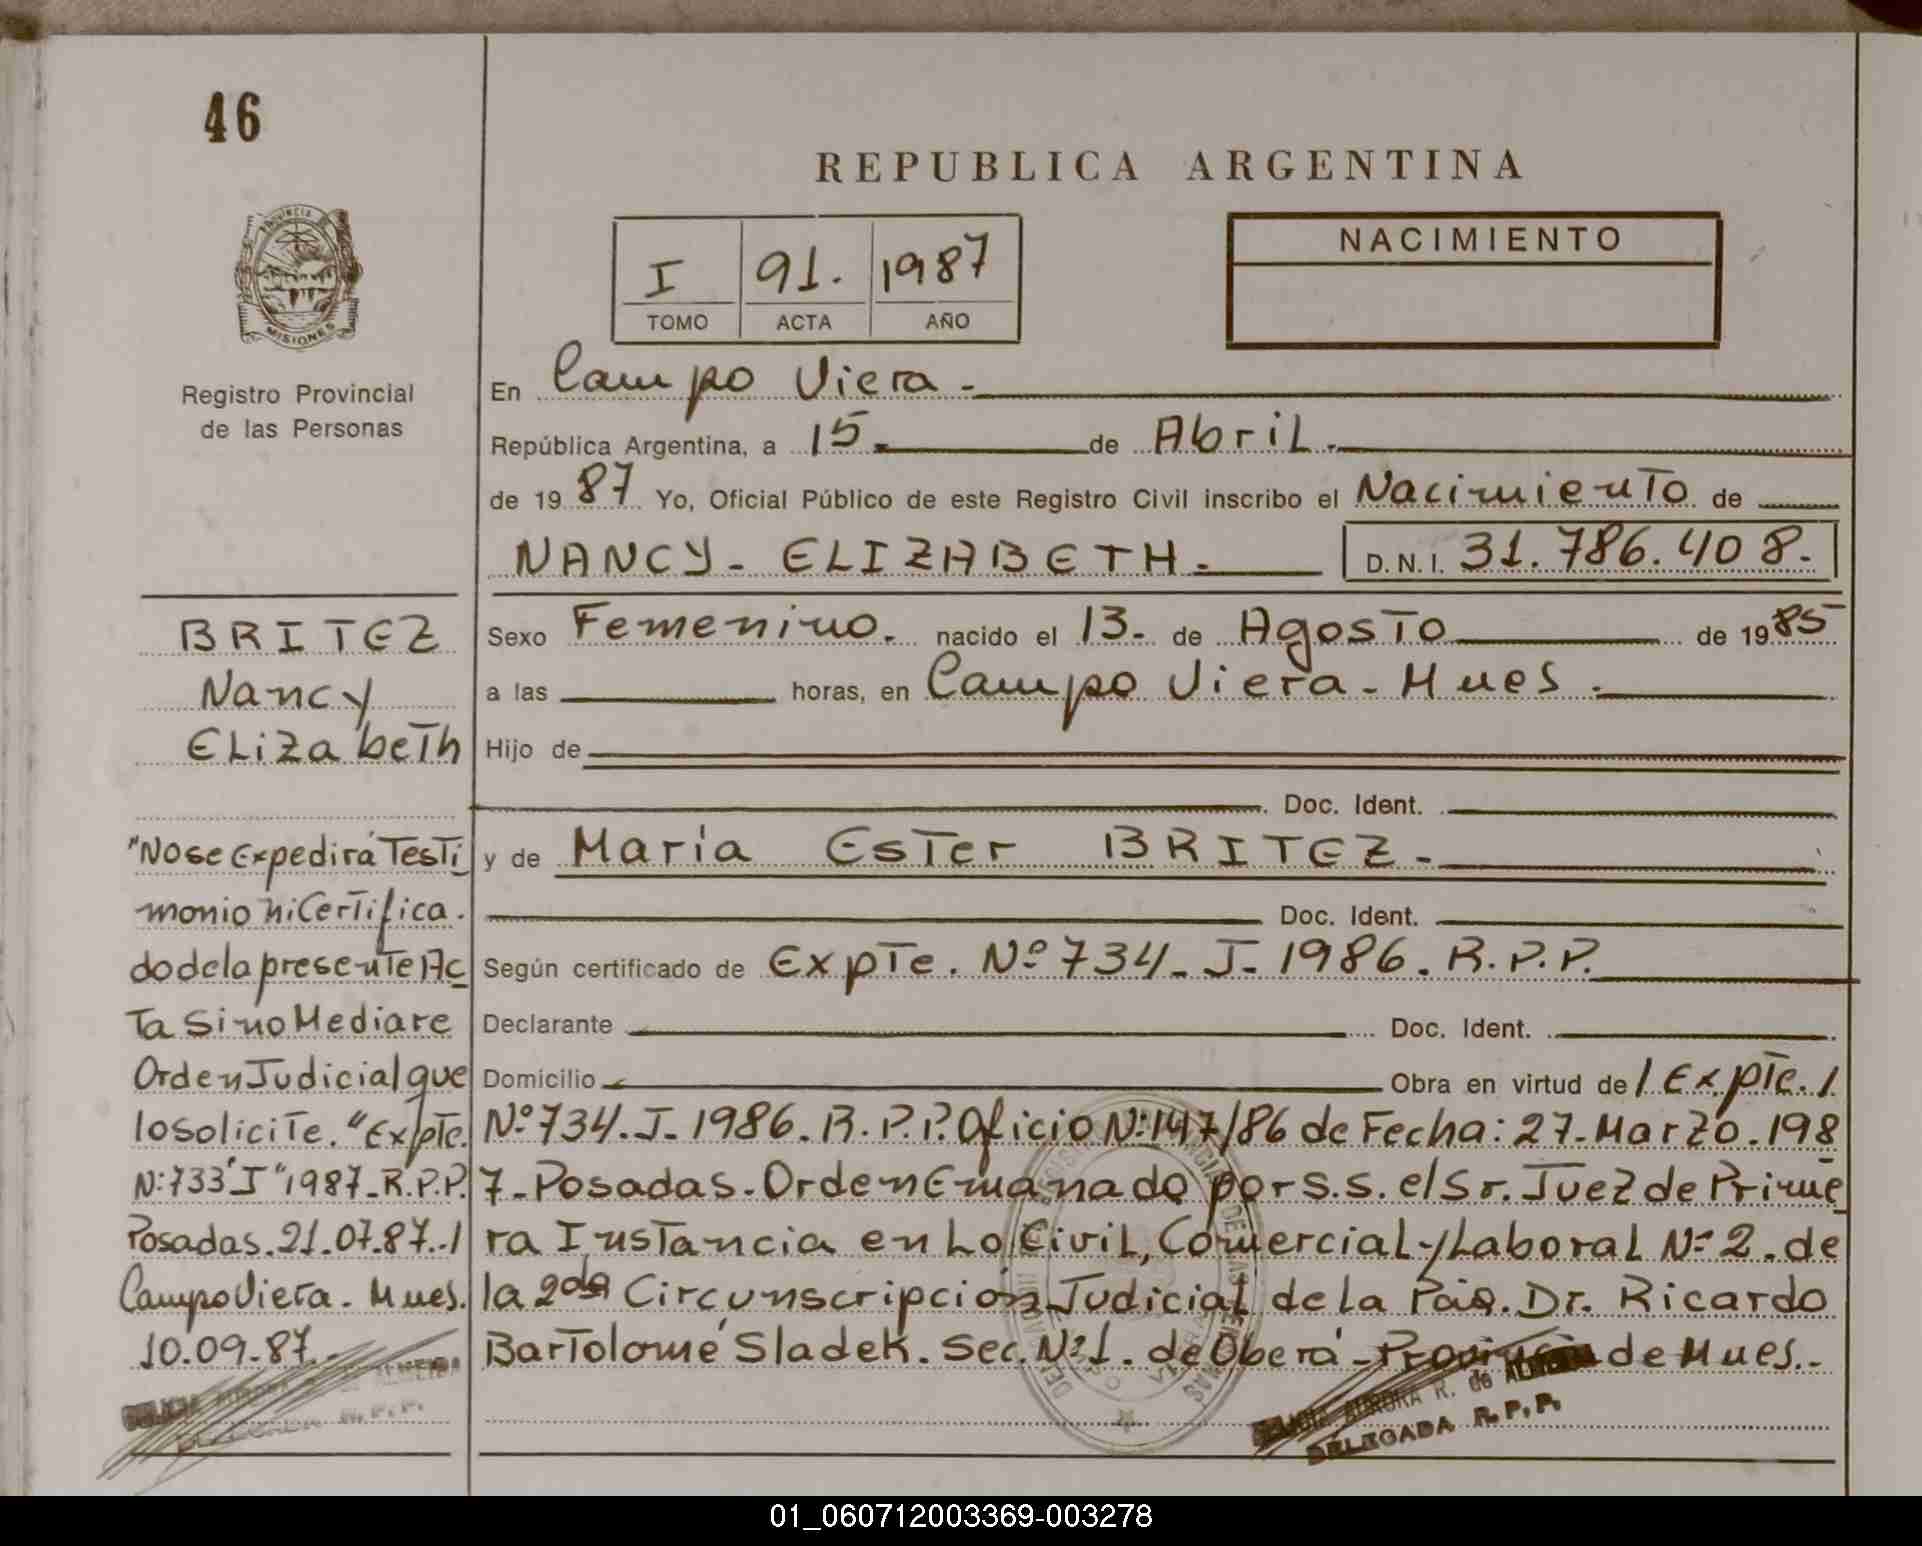 46
REPUBLICA ARGENTINA
PROVINCIA DE
MISIONES
Registro Provincial
de las Personas
I 91. 1987
TOMO ACTA AÑO
NACIMIENTO
En Campo Viera -
República Argentina, a 15. de Abril.
de 19 87 Yo, Oficial Público de este Registro Civil inscribo el Nacimiento de
NANCY - ELIZABETH. D.N.I. 31.786.408.-
Sexo Femenino. nacido el 13. de Agosto de 19 85
a las horas, en Campo Viera - Mnes.
Hijo de
Doc. Ident.
y de María Ester BRITEZ.
Doc. Ident.
Según certificado de Expte. Nº 734. J. 1986. R.P.P.
Declarante Doc. Ident.
Domicilio Obra en virtud de / Expte. /
Nº 734. J. 1986. R.P.P. Oficio Nº 147/86 de Fecha: 27. Marzo. 198
7. Posadas. Orden Emanado por S.S. el Sr. Juez de Prime
ra Instancia en Lo Civil, Comercial y Laboral Nº 2. de
la 2da Circunscripción Judicial de la Pcia. Dr. Ricardo
Bartolomé Sladek. Sec. Nº 1. de Oberá - Provincia de Mnes..
AURORA R. de ALMEIDA
DELEGADA R.P.P.
BRITEZ
Nancy
Elizabeth
"No se Expedirá Testi
monio ni Certifica.
do de la presente Ac
ta si no Mediare
Orden Judicial que
lo solicite." Expte.
Nº 733 "J" 1987. R.P.P.
Posadas. 21.07.87../
Campo Viera. Mnes.
10.09.87.
DELEGADA R.P.P.
01_060712003369-003278